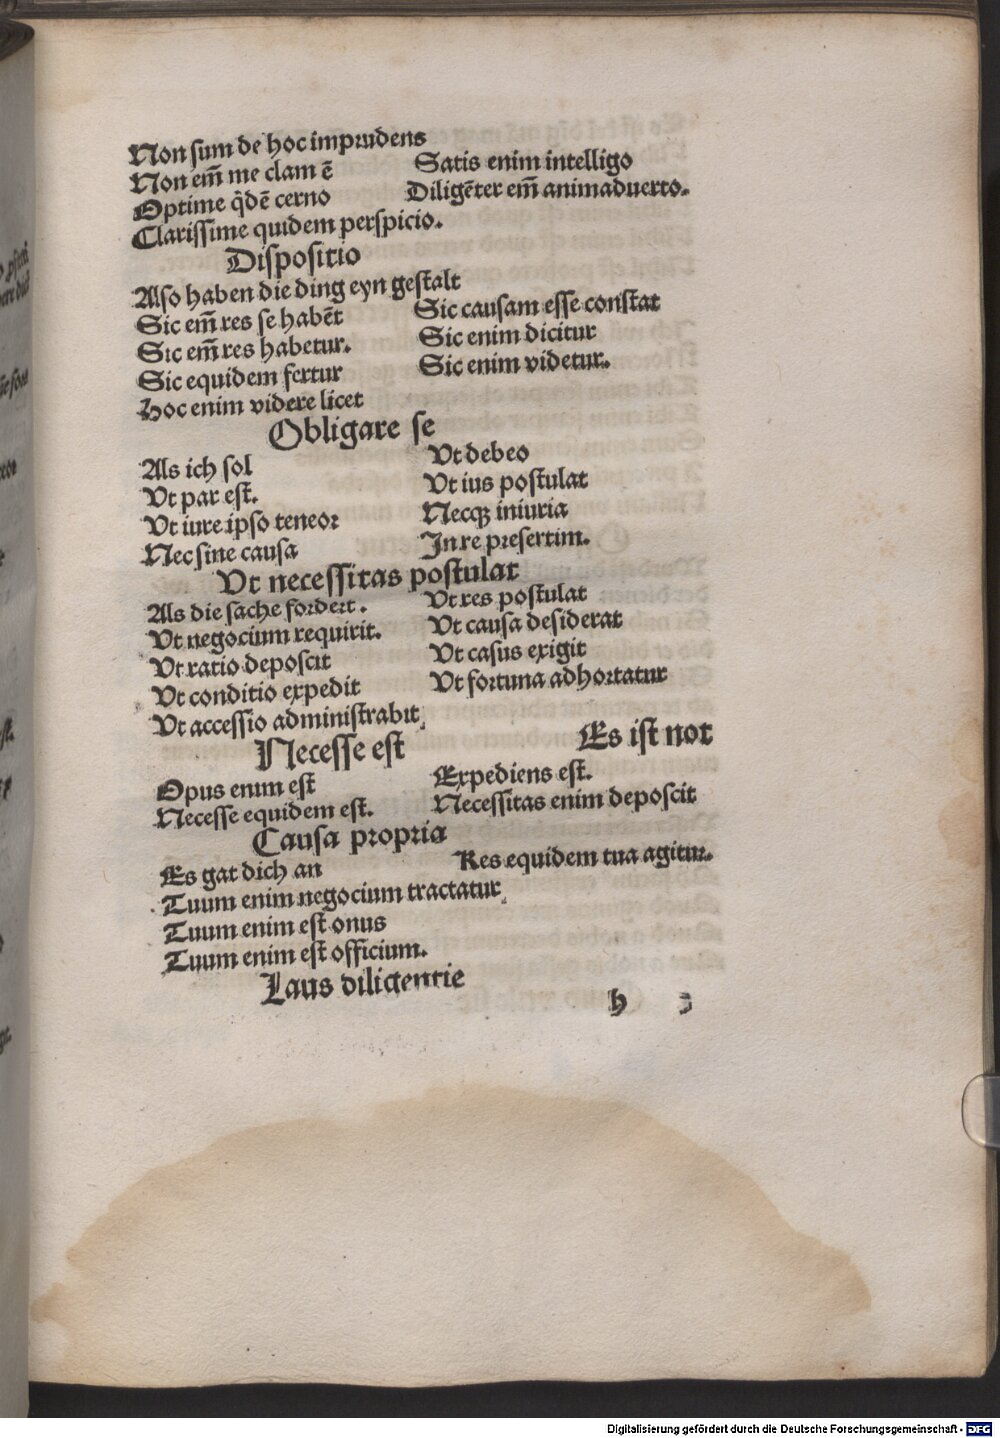 Non ſum de hoc imprudens
Non em̄ me clam ē Satis enim intelligo
Optime q̄dē cerno Diligēter em̄ animaduerto.
Clariſſime quidem perſpicio.
Diſpoſitio
Alſo haben die ding eyn geſtalt
Sic em̄ res ſe habēt Sic cauſam eſſe conſtat
Sic em̄ res habetur. Sic enim dicitur
Sic equidem fertur Sic enim videtur.
Hoc enim videre licet
Obligare ſe
Als ich ſol Vt debeo
Vt par eſt. Vt ius poſtulat
Vt iure ipſo teneoꝛ Necqꝫ iniuria
Nec ſine cauſa In re preſertim.
Vt neceſſitas poſtulat
Als die ſache foꝛdert. Vt res poſtulat
Vt negocium requirit. Vt cauſa deſiderat
Vt ratio depoſcit Vt caſus exigit
Vt conditio expedit Vt foꝛtuna adhoꝛtatur
Vt acceſſio adminiſtrabit.
Neceſſe eſt Es iſt not
Opus enim eſt Expediens eſt.
Neceſſe equidem eſt. Neceſſitas enim depoſcit
Cauſa propria
Es gat dich an Res equidem tua agitur.
Tuum enim negocium tractatur.
Tuum enim eſt onus
Tuum enim eſt officium.
Laus diligentie
h 3
Digitalisierung gefördert durch die Deutsche Forschungsgemeinschaft - DFG